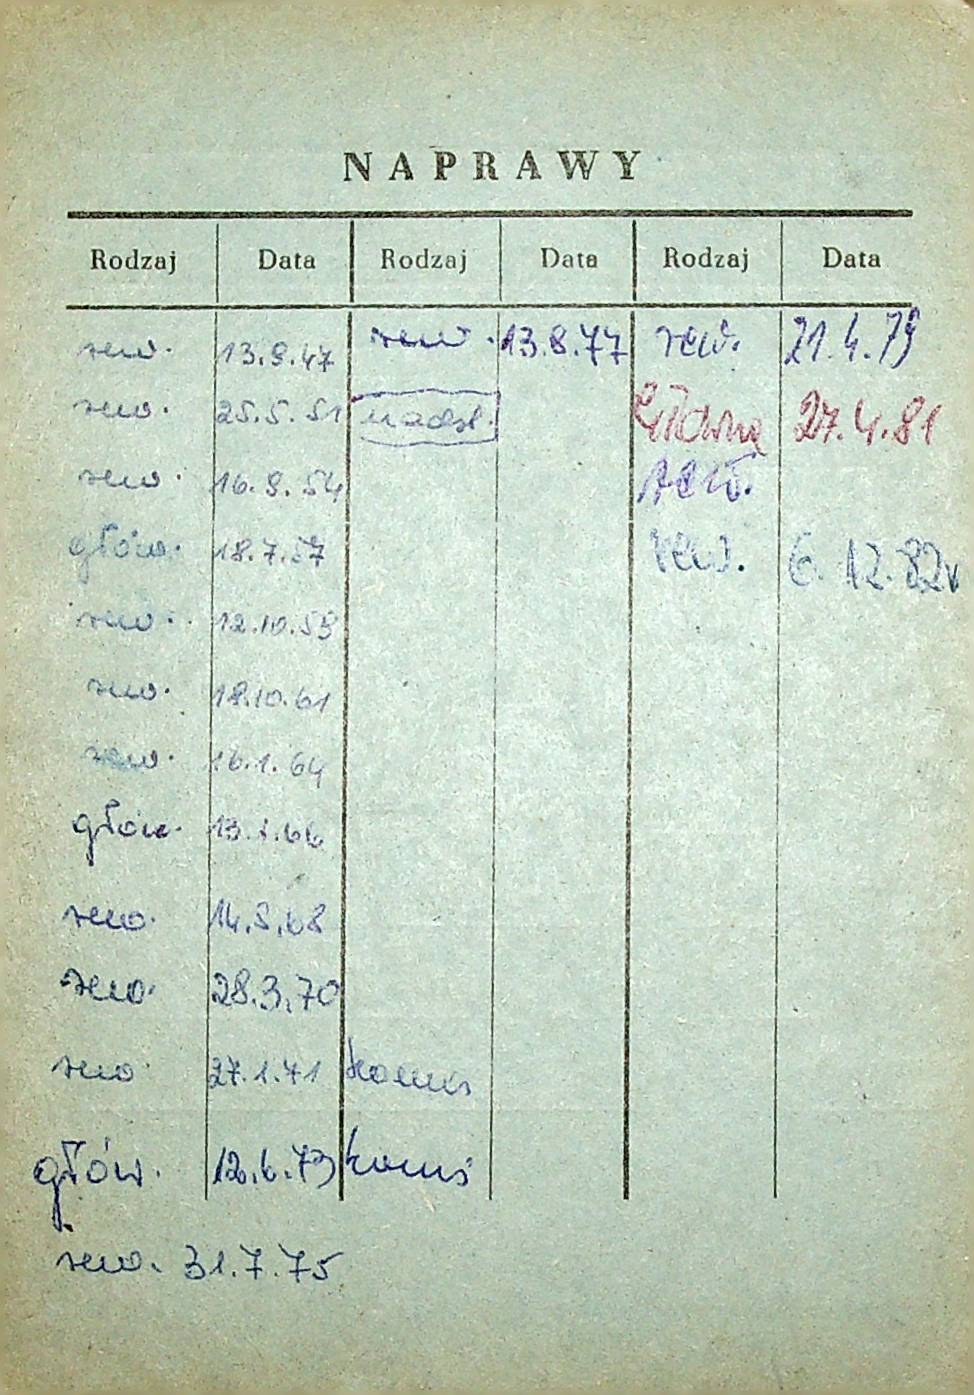 NAPRAWY
Rodzaj Data Rodzaj Data Rodzaj Data
rew. 13.9.47 rew. 13.8.77 rew. 21.4.79
rew. 25.5.51 nadzl. Główna 27.4.81
rew. 16.9.54 rew.
głów. 18.7.57 rew. 6.12.82
rew. 12.10.59
rew. 18.10.61
rew. 16.1.64
głów.
rew. 14.8.68
rew. 28.3.70
rew. 27.1.71
głów. 12.6.73
rew. 31.7.75